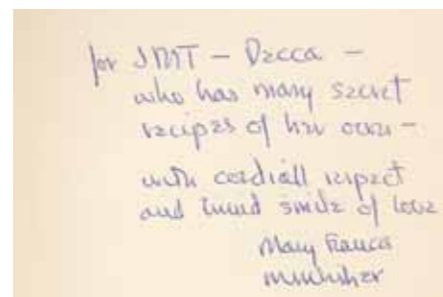 for JMT – Decca –
who has many secret
recipes of her own –
with cordiall respect
and smile of love
Mary Frances
MFKFisher